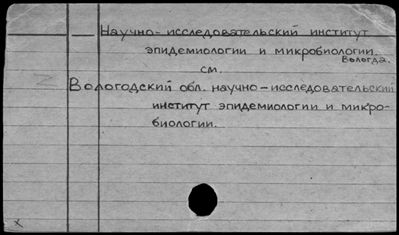 — Научно-исследовательский институт
эпидемиологии и микробиологии.
Вологда.
см.
Вологодский обл. научно-исследовательский
институт эпидемиологии и микро-
биологии.
x